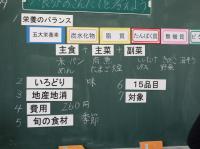 栄養のバランス
五大栄養素 炭水化物 脂質 たんぱく質 無機質
主食 + 主菜 + 副菜
米 パン 肉 魚
めん たまご 豆
2 いろどり 味 6 15品目
3 地産地消 7 対象
4 費用 260円
5 旬の食材 季節